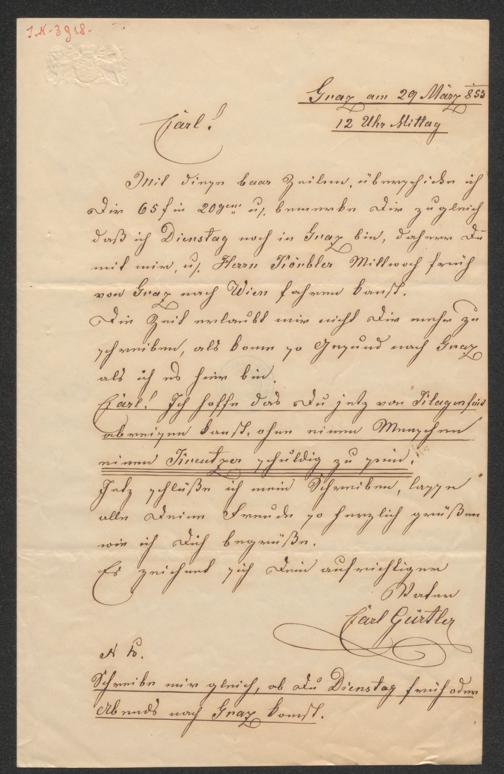 I.N. 3918.
Graz am 29 März 853
12 Uhr Mittag
Carl!
Mit diese baar Zeilen, überschicke ich
Dir 65 f in 20gern u/. bemerke Dir zugleich
daß ich Dienstag noch in Graz bin, daherr Du
mit mir, u/. Herrn Körbler Mittwoch früh
von Graz nach Wien fahren kanst.
Die Zeit erlaubt mir nicht Dir mehr zu
schreiben, als kome so Gesund nach Graz
als ich es hier bin.
Carl! Ich hoffe das Du jetz von Klagenfurt
abreisen kanst, ohne einem Menschen
einen Kreutzer schuldig zu sein.
Jetz schlüße ich mein Schreiben, lasse
alle Deine Freude so herzlich grüßen
wie ich Dich begrüße.
Es zeichnet sich Dein aufrichtiger
Vater
Carl Gürtler
N b.
Schreibe mir gleich, ob Du Dienstag früh oder
Abends nach Graz komst.